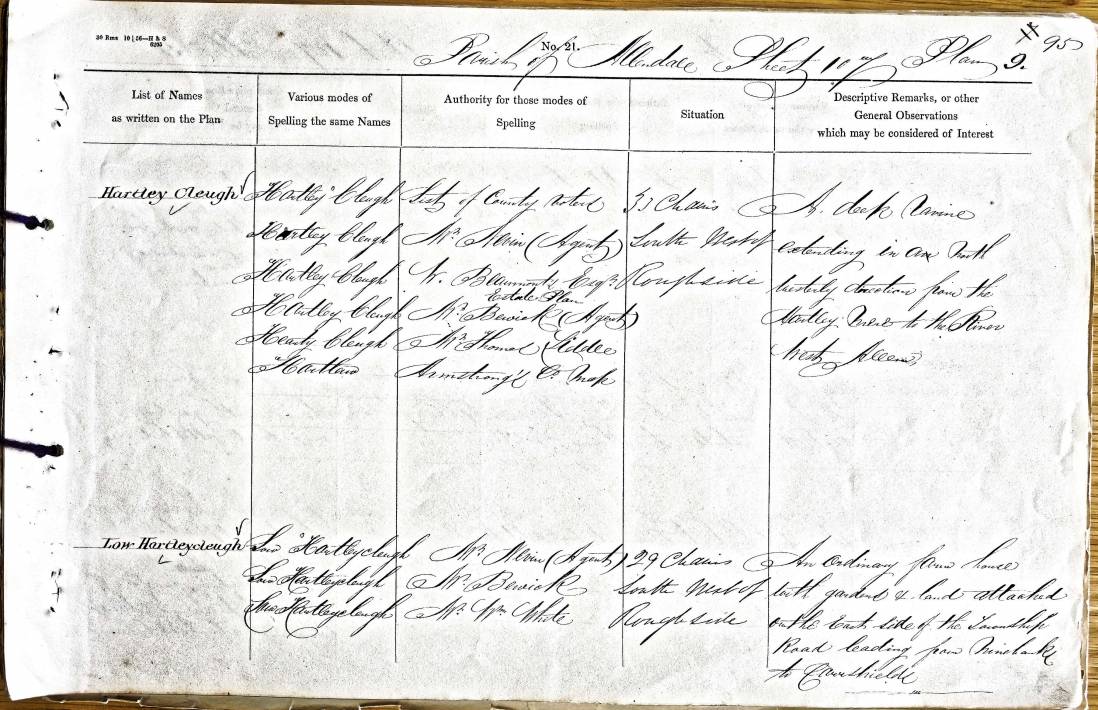 30 Rms 10|56—H & S
6205
No. 21.
11 95
Parish of Allendale Sheet 10 of Plan 9.
List of Names
as written on the Plan
Various modes of
Spelling the same Names
Authority for those modes of
Spelling
Situation
Descriptive Remarks, or other
General Observations
which may be considered of Interest
Hartley Cleugh
Hartley Cleugh
Hartley Cleugh
Hartley Cleugh
Hartley Cleugh
Hearty Cleugh
Hartlaw
List of County Voters
Mr. Nevin (Agent)
W. Beaumont Esqr.
Estate Plan
Mr. Bewick (Agent)
Mr. Thomas Liddle
Armstrong's Co. Map
33 Chains
South West of
Roughside
A deep Ravine
extending in an North
westerly direction from the
Hartley to the River
West Allen
Low Hartleycleugh
Low Hartleycleugh
Low Hartleycleugh
Low Hartleycleugh
Mr. Nevin (Agent)
Mr. Bewick
Mr. Wm. White
29 Chains
South West of
Roughside
An ordinary farm house
with gardens & land attached
on the East side of the Township
Road leading from Ninebanks
to Carrshield